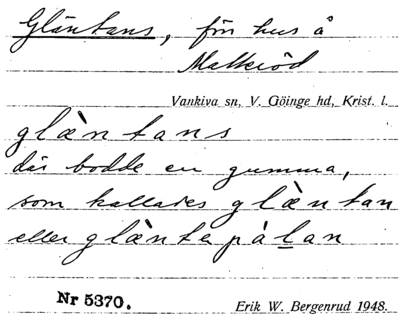 Gläntans, för hus å
Malseröd
Vankiva sn, V. Göinge hd, Krist. l.
glæ̀ntans
där bodde en gumma,
som kallades glæ̀ntan
eller glæ̀ntepàlan
Nr 5370. Erik W. Bergenrud 1948.